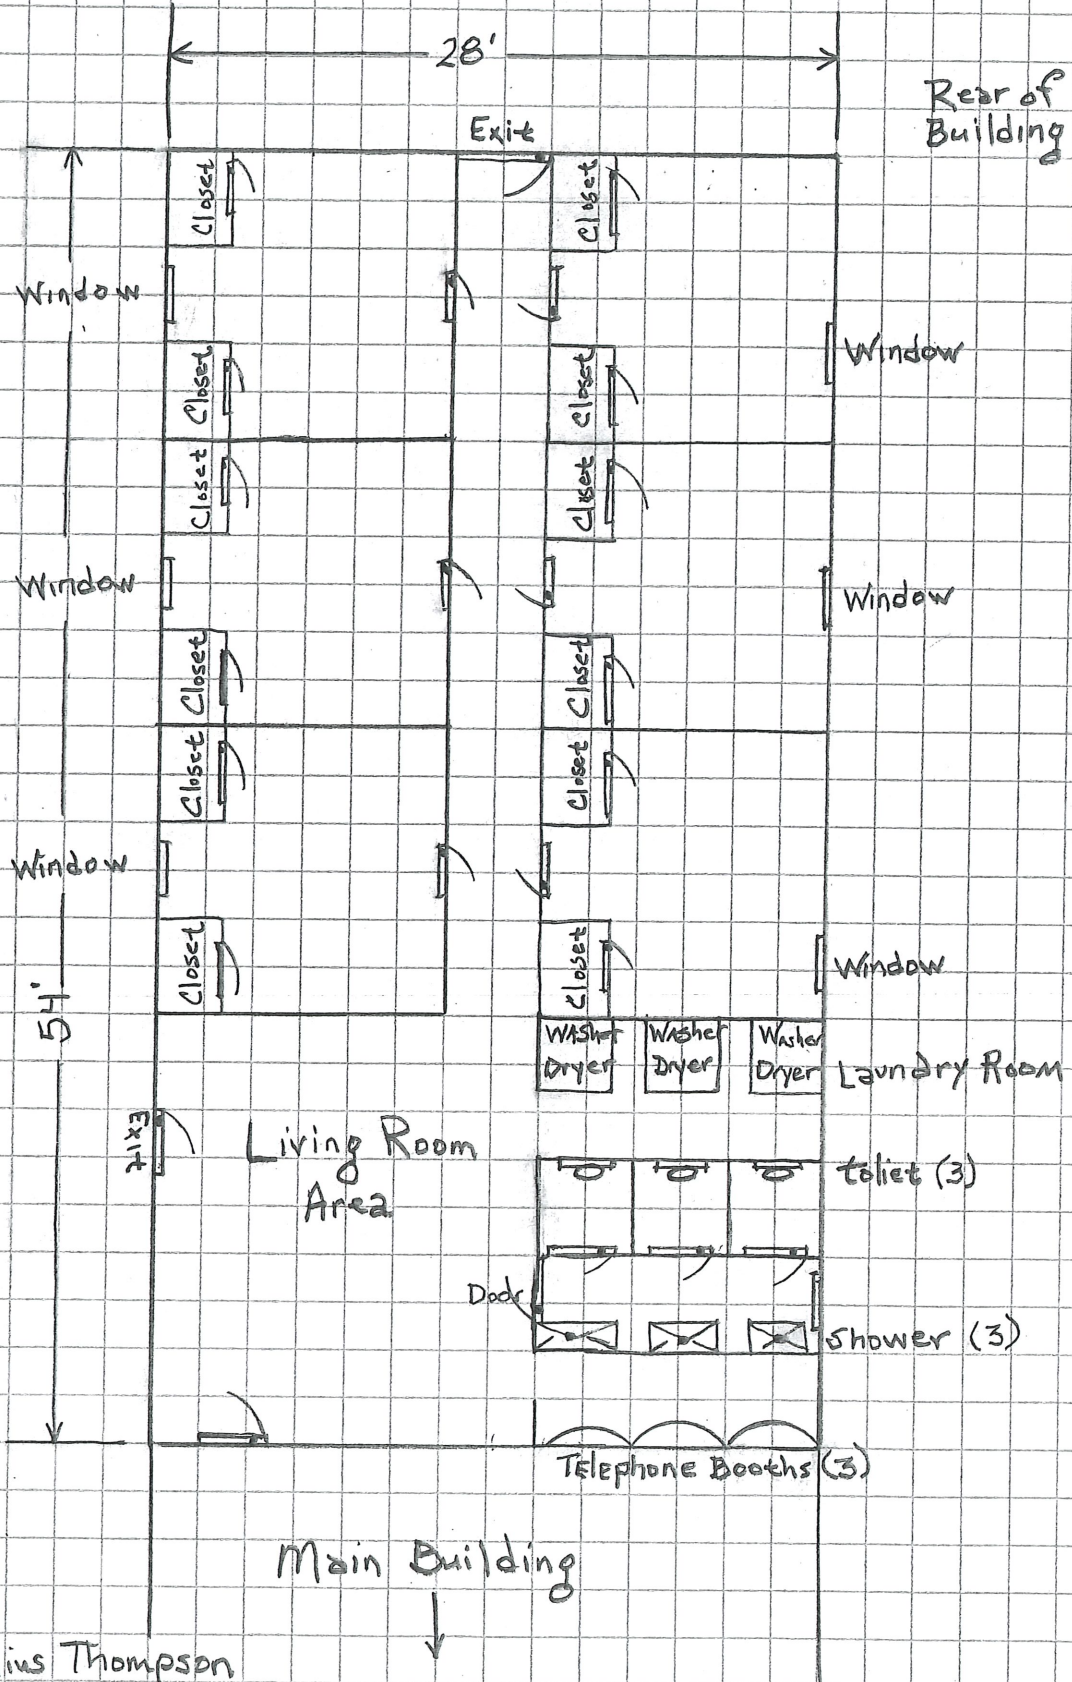 28'
Rear of
Building
Exit
Closet
Closet
Window
Window
Closet
Closet
Closet
Closet
Window
Window
Closet
Closet
Closet
Closet
Window
Closet
Closet
Window
54'
Washer
Dryer
Washer
Dryer
Washer
Dryer
Laundry Room
Exit
Living Room
Area
toliet (3)
Door
Shower (3)
Telephone Booths (3)
Main Building
ius Thompson